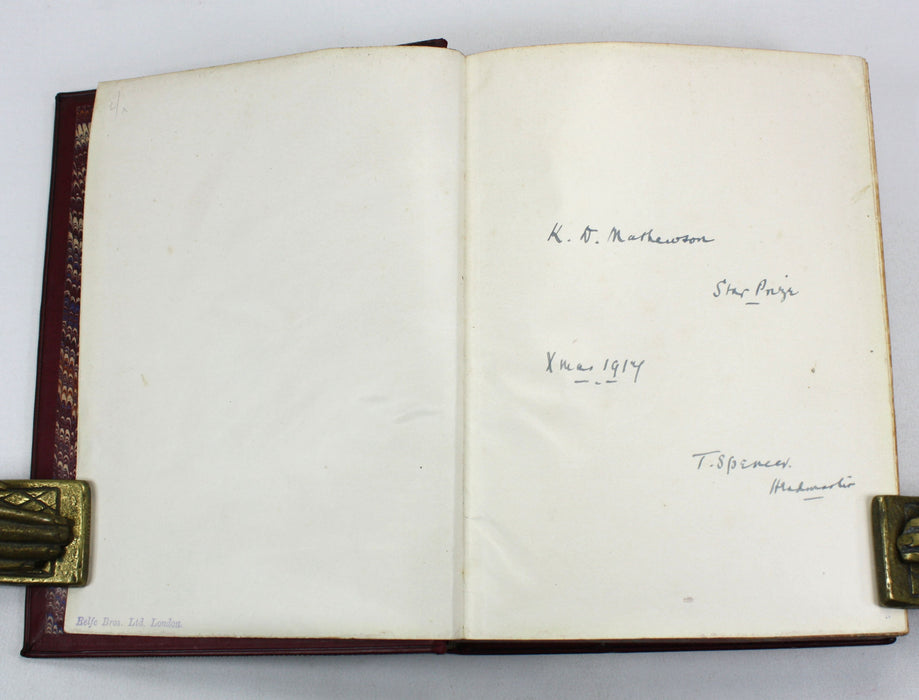 K. D. Mathewson
Star Prize
Xmas 1917
T. Spencer.
Headmaster
Relfe Bros. Ltd. London.